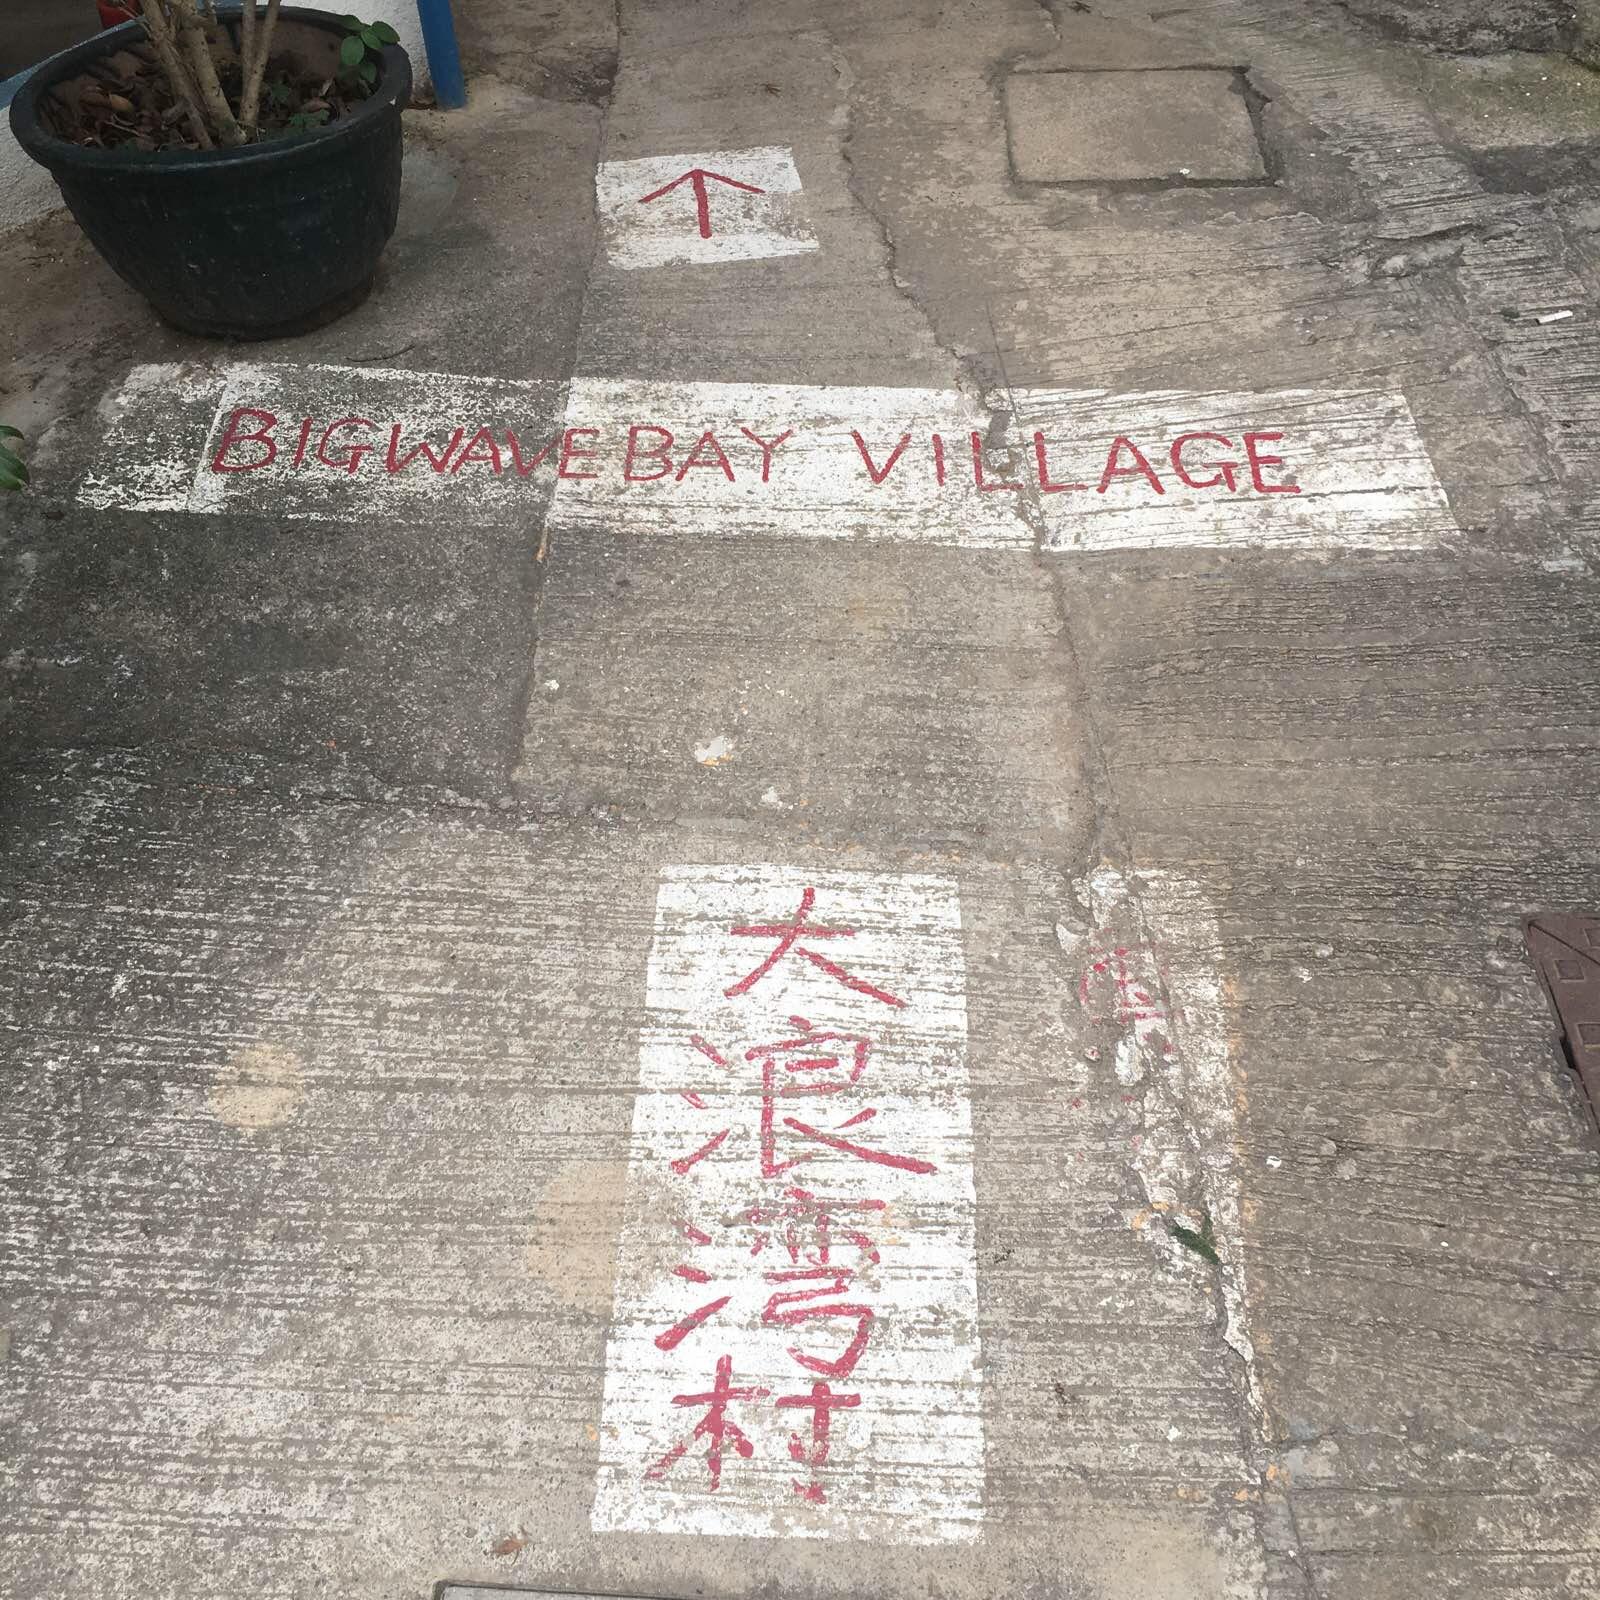 ↑
BIGWAVEBAY VILLAGE
大浪湾村